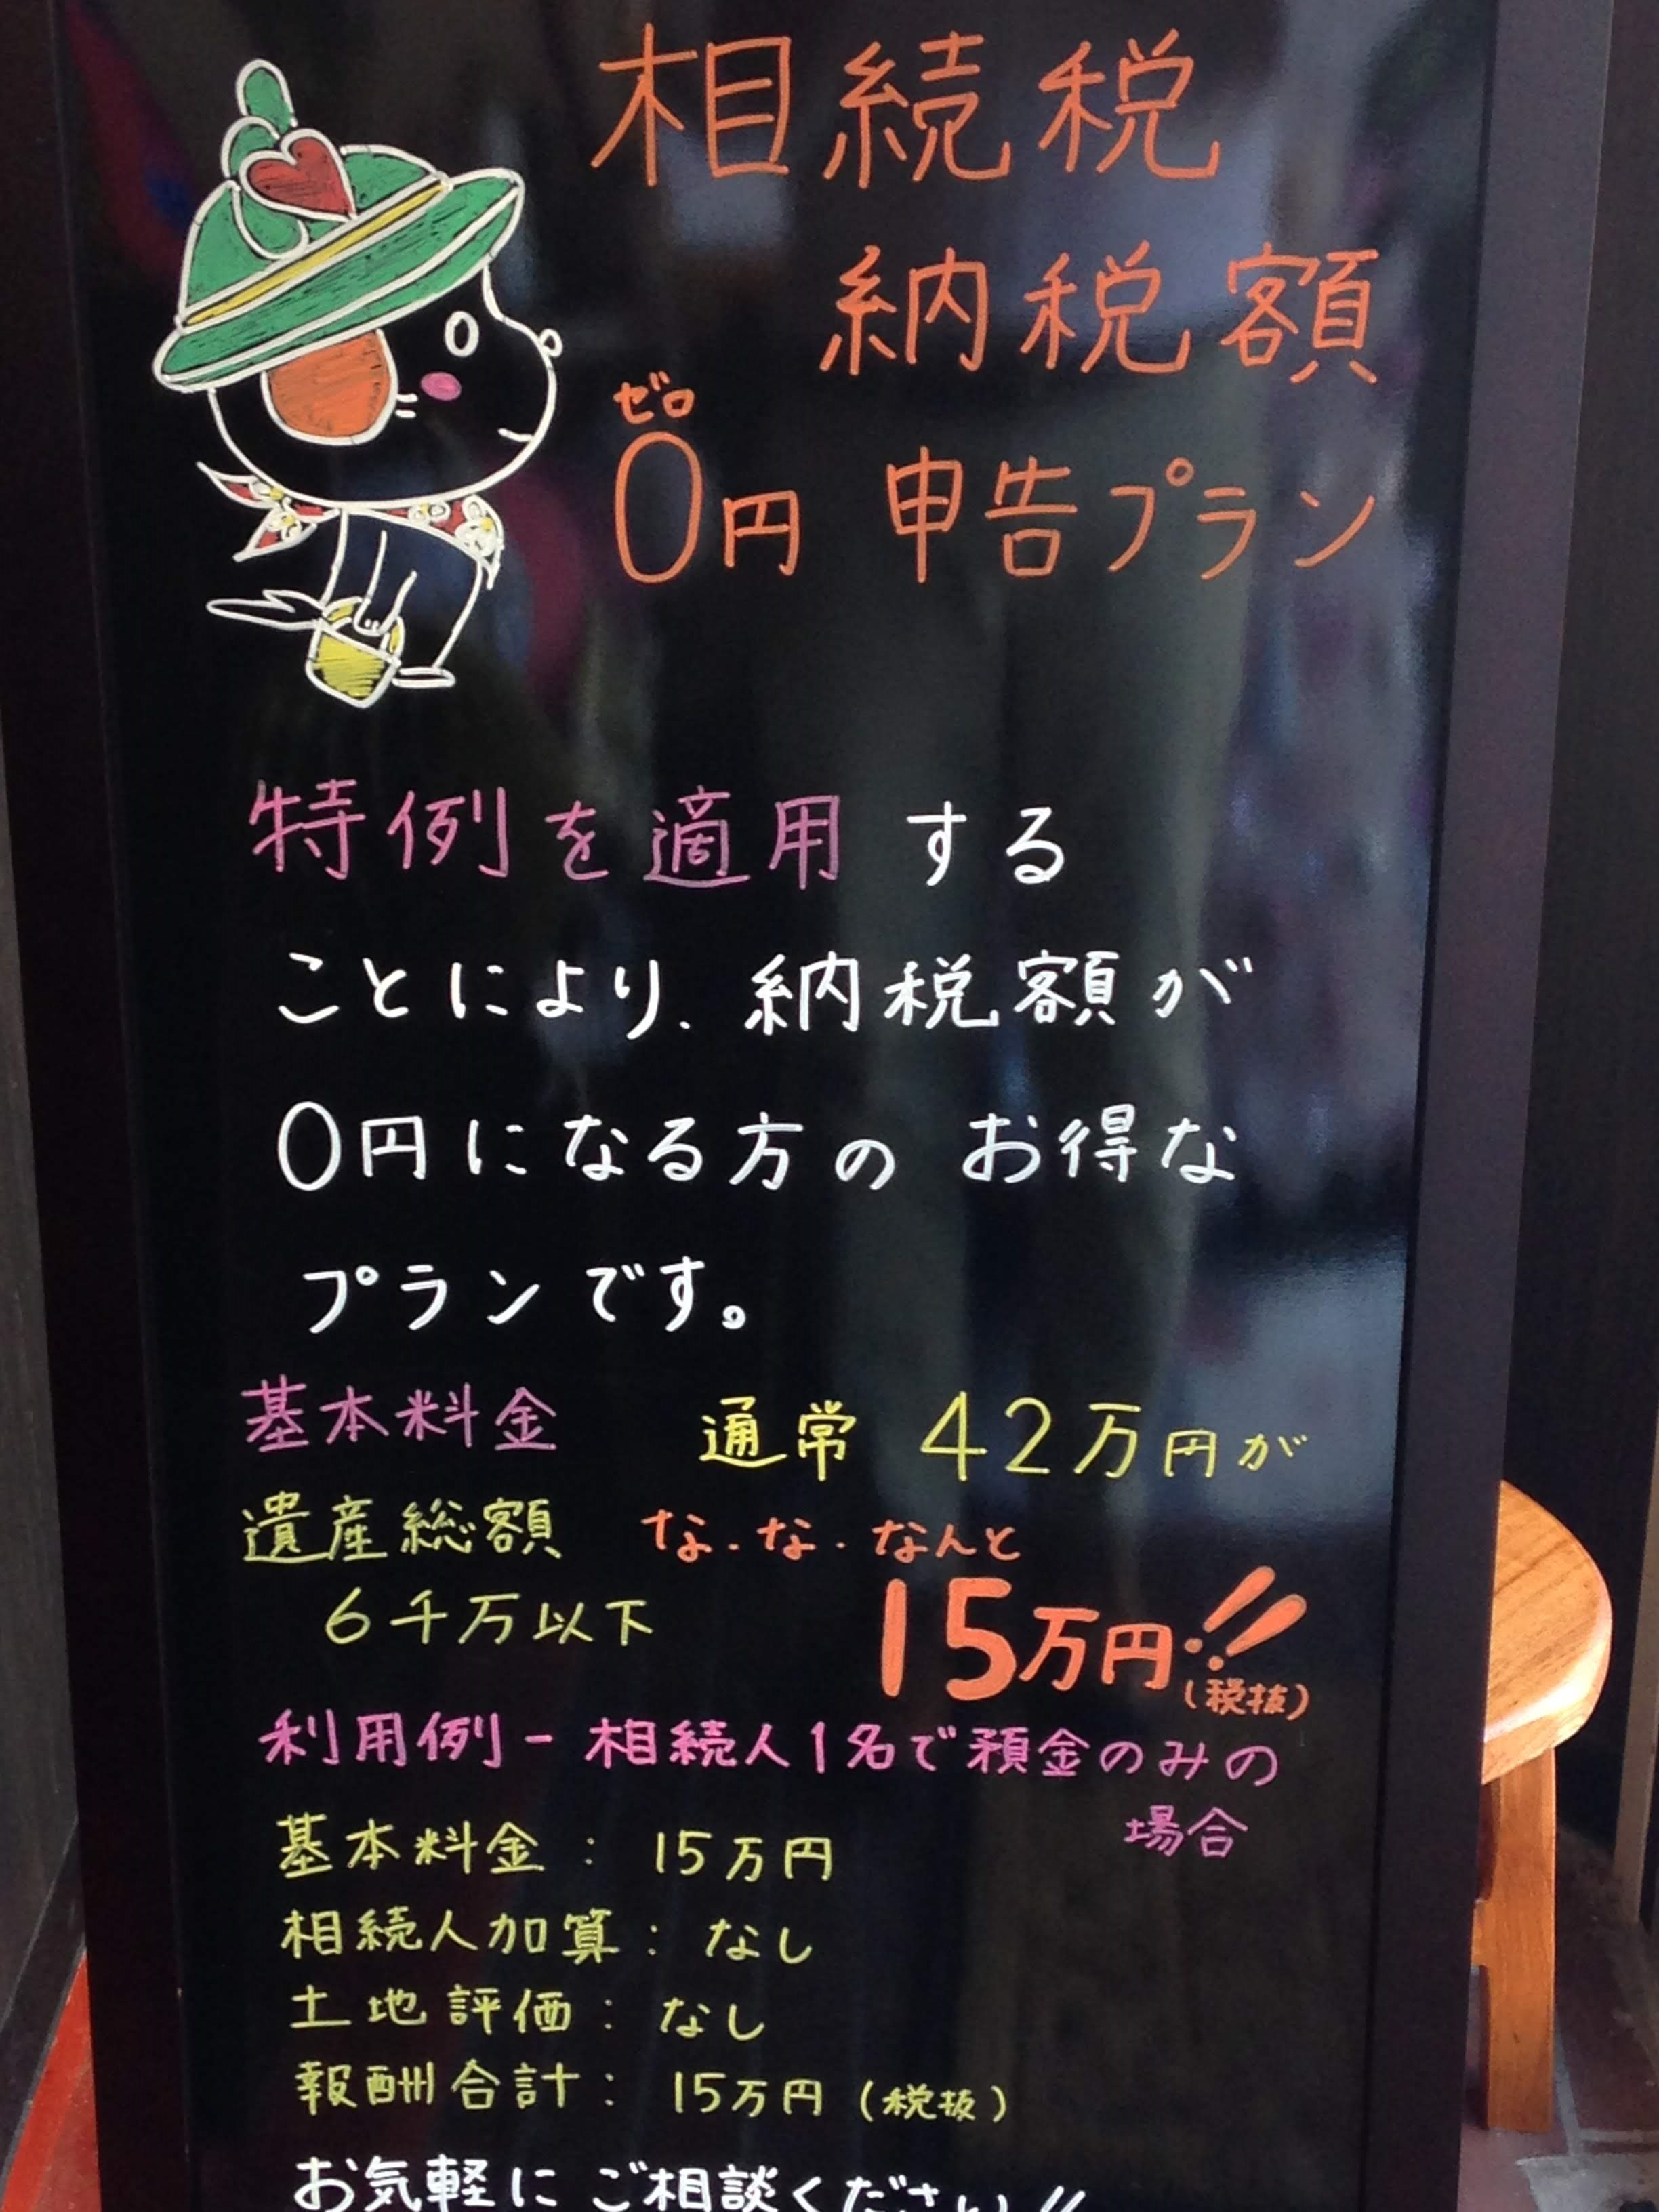 相続税
納税額
ゼロ
0円 申告プラン
特例を適用する
ことにより、納税額が
0円になる方のお得な
プランです。
基本料金 通常 42万円が
遺産総額 な・な・なんと
6千万以下 15万円!!
(税抜)
利用例-相続人1名で預金のみの
場合
基本料金:15万円
相続人加算:なし
土地評価:なし
報酬合計:15万円(税抜)
お気軽にご相談ください!!